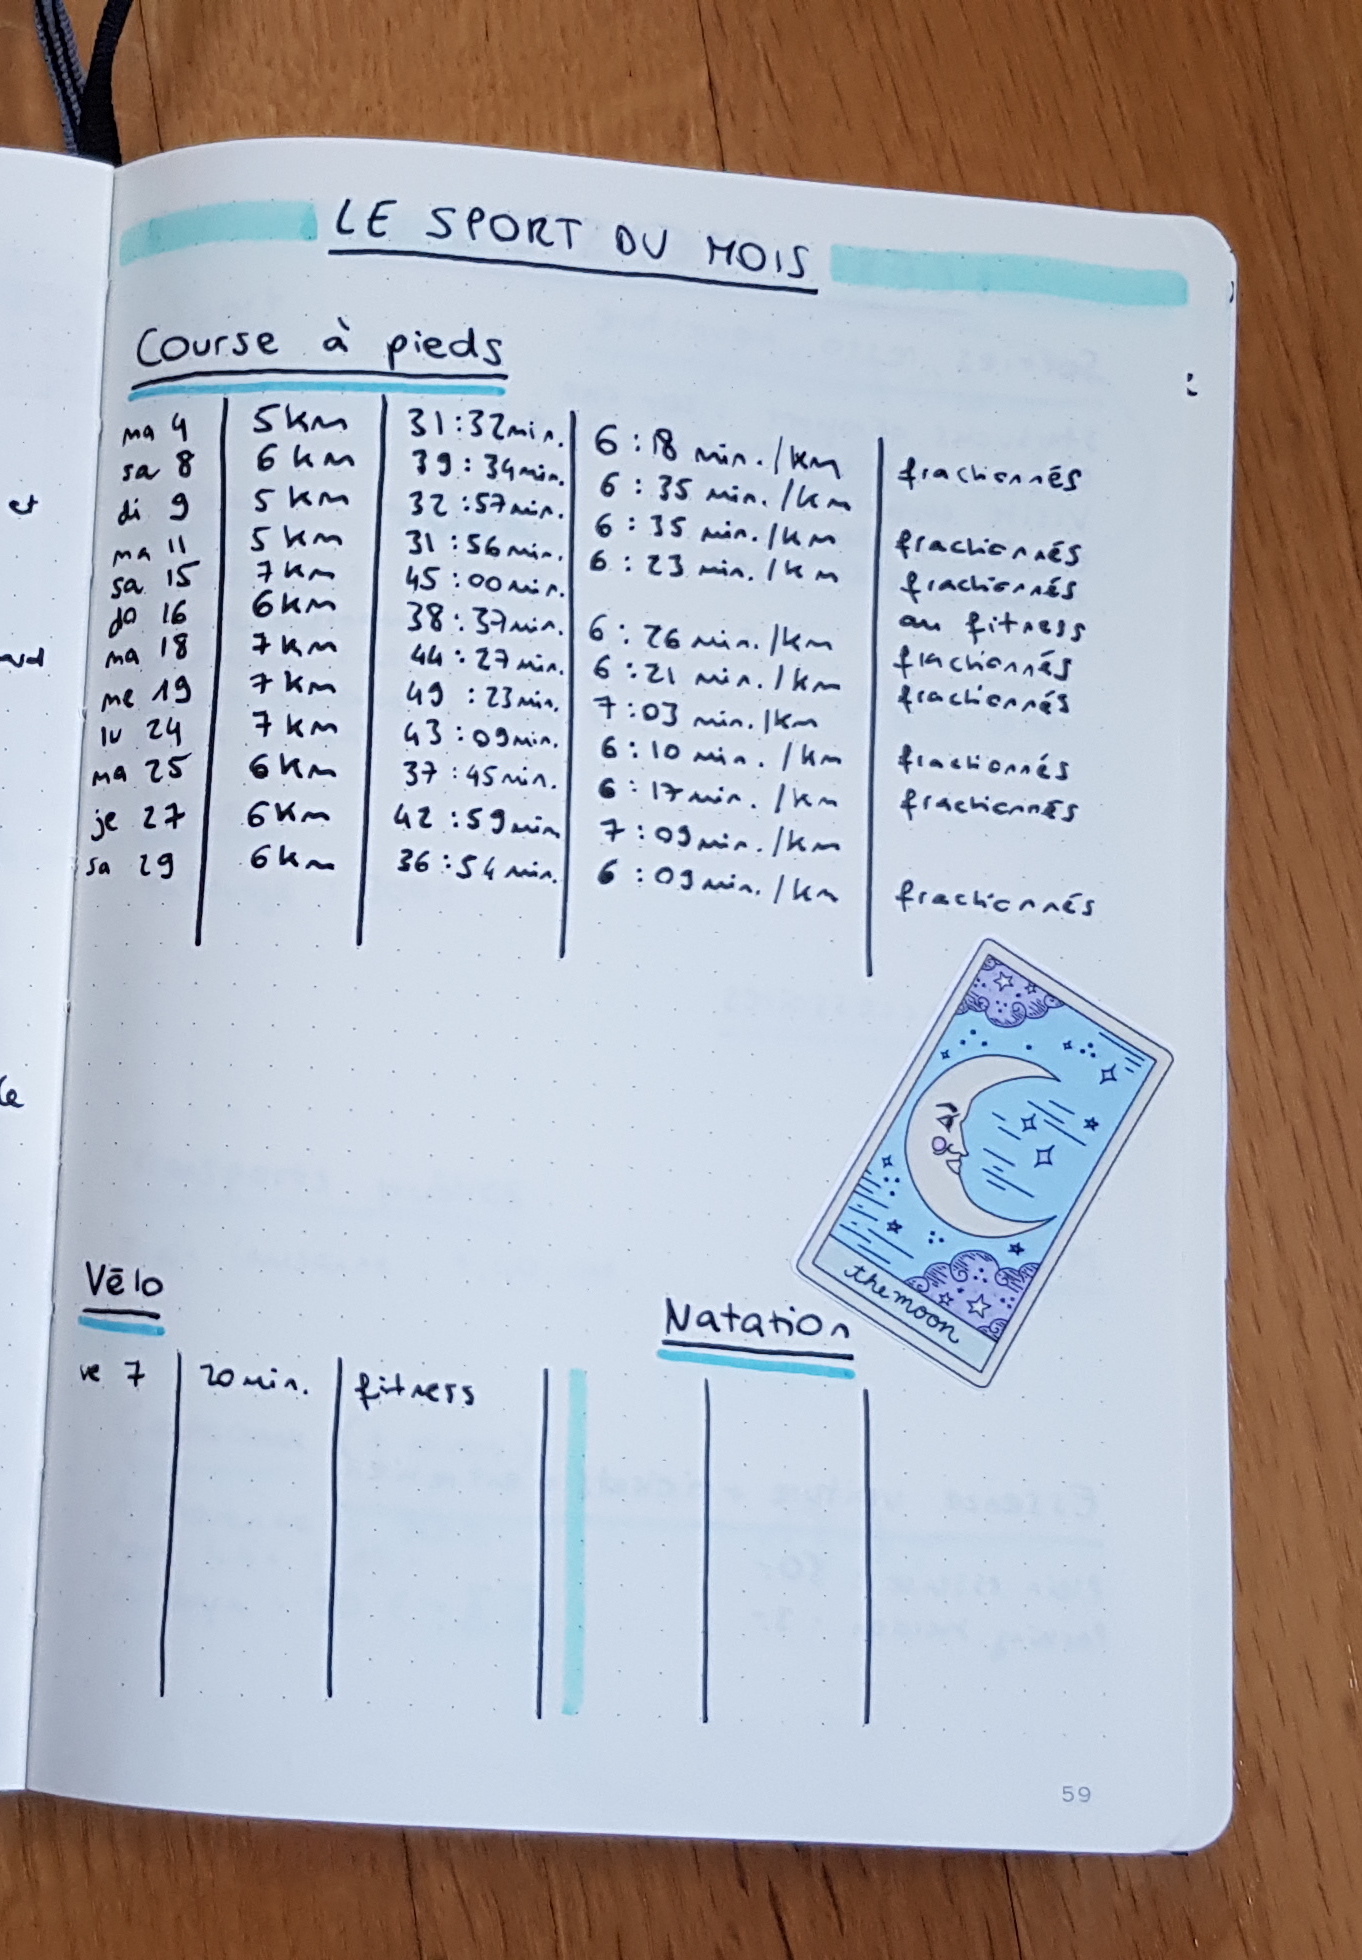 LE SPORT DU MOIS
Course à pieds
ma 4 5 km 31:32 min. 6:18 min./km fractionnés
sa 8 6 km 39:34 min. 6:35 min./km
di 9 5 km 32:57 min. 6:35 min./km fractionnés
ma 11 5 km 31:56 min. 6:23 min./km fractionnés
sa 15 7 km 45:00 min. au fitness
do 16 6 km 38:37 min. 6:26 min./km fractionnés
ma 18 7 km 44:27 min. 6:21 min./km fractionnés
me 19 7 km 49:23 min. 7:03 min./km
lu 24 7 km 43:09 min. 6:10 min./km fractionnés
ma 25 6 km 37:45 min. 6:17 min./km fractionnés
je 27 6 km 42:59 min 7:09 min./km
sa 29 6 km 36:54 min. 6:09 min./km fractionnés
the moon
Vélo
ve 7 20 min. fitness
Natation
59
et